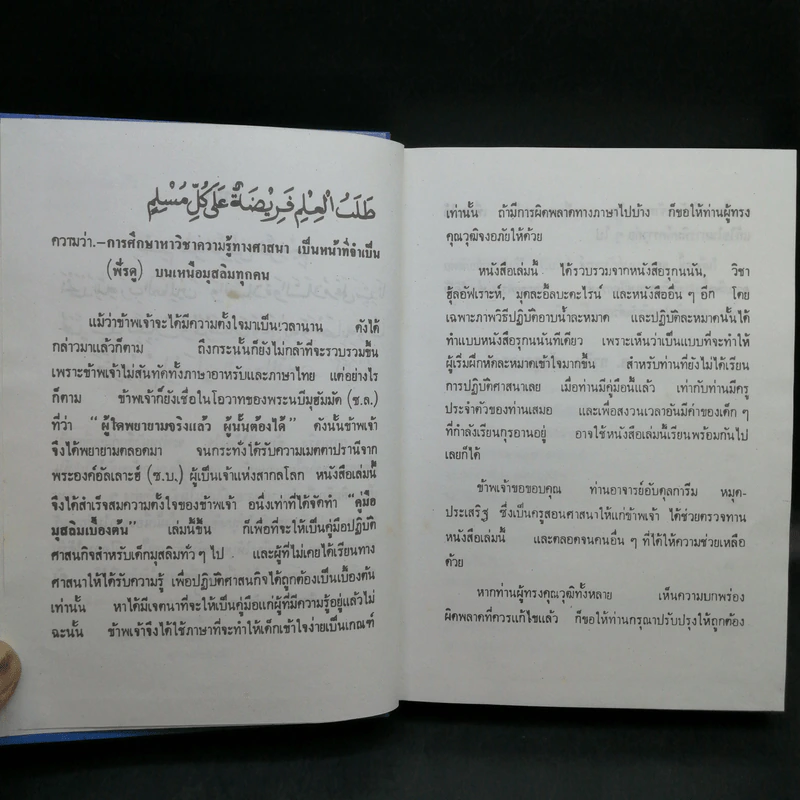 طَلَبُ الْعِلْمِ فَرِيْضَةٌ عَلَى كُلِّ مُسْلِمٍ
ความว่า.–การศึกษาหาวิชาความรู้ทางศาสนา เป็นหน้าที่จำเป็น
(พี่รดู) บนเหนือมุสลิมทุกคน
แม้ว่าข้าพเจ้าจะได้มีความตั้งใจมาเป็นเวลานาน ดังได้
กล่าวมาแล้วก็ตาม ถึงกระนั้นก็ยังไม่กล้าที่จะรวบรวมขึ้น
เพราะข้าพเจ้าไม่สันทัดทั้งภาษาอาหรับและภาษาไทย แต่อย่างไร
ก็ตาม ข้าพเจ้าก็ยังเชื่อในโอวาทของพระนบีมุฮัมมัด (ซ.ล.)
ที่ว่า “ผู้ใดพยายามจริงแล้ว ผู้นั้นต้องได้” ดังนั้นข้าพเจ้า
จึงได้พยายามตลอดมา จนกระทั่งได้รับความเมตตาปรานีจาก
พระองค์อัลเลาะฮ์ (ซ.บ.) ผู้เป็นเจ้าแห่งสากลโลก หนังสือเล่มนี้
จึงได้สำเร็จสมความตั้งใจของข้าพเจ้า อนึ่งเท่าที่ได้จัดทำ “คู่มือ
มุสลิมเบื้องต้น” เล่มนี้ขึ้น ก็เพื่อที่จะให้เป็นคู่มือปฏิบัติ
ศาสนกิจสำหรับเด็กมุสลิมทั่ว ๆ ไป และผู้ที่ไม่เคยได้เรียนทาง
ศาสนาให้ได้รับความรู้ เพื่อปฏิบัติศาสนกิจได้ถูกต้องเป็นเบื้องต้น
เท่านั้น หาได้มีเจตนาที่จะให้เป็นคู่มือแก่ผู้ที่มีความรู้อยู่แล้วไม่
ฉะนั้น ข้าพเจ้าจึงได้ใช้ภาษาที่จะทำให้เด็กเข้าใจง่ายเป็นเกณฑ์
เท่านั้น ถ้ามีการผิดพลาดทางภาษาไปบ้าง ก็ขอให้ท่านผู้ทรง
คุณวุฒิจงอภัยให้ด้วย
หนังสือเล่มนี้ ได้รวบรวมจากหนังสือรุกนนัน, วิชา
ฮุ้ลอัฟเราะห์, มุตละอิ้ลบะดะไรน์ และหนังสืออื่น ๆ อีก โดย
เฉพาะภาพวิธีปฏิบัติอาบน้ำละหมาด และปฏิบัติละหมาดนั้นได้
ทำแบบหนังสือรุกนนันทีเดียว เพราะเห็นว่าเป็นแบบที่จะทำให้
ผู้เริ่มฝึกหัดละหมาดเข้าใจมากขึ้น สำหรับท่านที่ยังไม่ได้เรียน
การปฏิบัติศาสนาเลย เมื่อท่านมีคู่มือนี้แล้ว เท่ากับท่านมีครู
ประจำตัวของท่านเสมอ และเพื่อสงวนเวลาอันมีค่าของเด็ก ๆ
ที่กำลังเรียนกุรอานอยู่ อาจใช้หนังสือเล่มนี้เรียนพร้อมกันไป
เลยก็ได้
ข้าพเจ้าขอขอบคุณ ท่านอาจารย์อับดุลการีม หมุด-
ประเสริฐ ซึ่งเป็นครูสอนศาสนาให้แก่ข้าพเจ้า ได้ช่วยตรวจทาน
หนังสือเล่มนี้ และตลอดจนคนอื่น ๆ ที่ได้ให้ความช่วยเหลือ
ด้วย
หากท่านผู้ทรงคุณวุฒิทั้งหลาย เห็นความบกพร่อง
ผิดพลาดที่ควรแก้ไขแล้ว ก็ขอให้ท่านกรุณาปรับปรุงให้ถูกต้อง